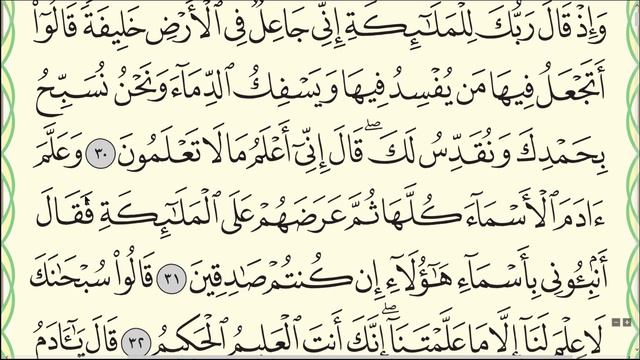 وَإِذْ قَالَ رَبُّكَ لِلْمَلَٰٓئِكَةِ إِنِّي جَاعِلٌ فِي ٱلْأَرْضِ خَلِيفَةً قَالُوٓا۟
أَتَجْعَلُ فِيهَا مَن يُفْسِدُ فِيهَا وَيَسْفِكُ ٱلدِّمَآءَ وَنَحْنُ نُسَبِّحُ
بِحَمْدِكَ وَنُقَدِّسُ لَكَ ۖ قَالَ إِنِّيٓ أَعْلَمُ مَا لَا تَعْلَمُونَ ٣٠ وَعَلَّمَ
ءَادَمَ ٱلْأَسْمَآءَ كُلَّهَا ثُمَّ عَرَضَهُمْ عَلَى ٱلْمَلَٰٓئِكَةِ فَقَالَ
أَنۢبِـُٔونِي بِأَسْمَآءِ هَٰٓؤُلَآءِ إِن كُنتُمْ صَٰدِقِينَ ٣١ قَالُوا۟ سُبْحَٰنَكَ
لَا عِلْمَ لَنَآ إِلَّا مَا عَلَّمْتَنَآ ۖ إِنَّكَ أَنتَ ٱلْعَلِيمُ ٱلْحَكِيمُ ٣٢ قَالَ يَٰٓـَٔادَمُ